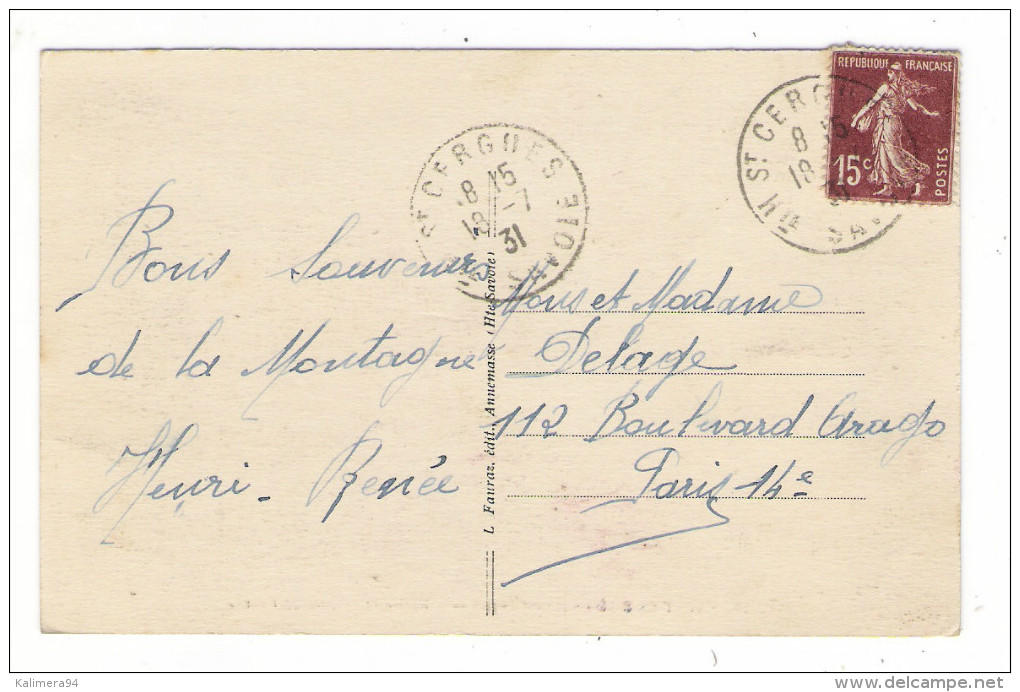 REPUBLIQUE FRANÇAISE
15c
POSTES
ST CERGUES
8 15
18 -7
31
HTE SAVOIE
ST CERG
8 15
18
31
HTE SAV
Bons Souvenirs
de la Montagne
Henri - Renée
L. Fauraz, édit., Annemasse (Hte-Savoie)
Mons et Madame
Delage
112 Boulevard Arago
Paris 14e
Kalimera94
www.delcampe.net